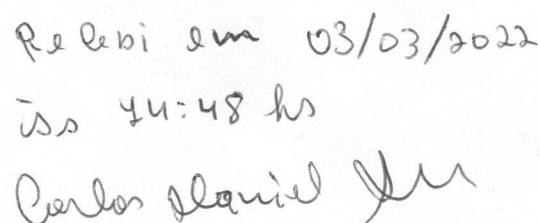 Recebi em 03/03/2022
às 14:48 hs
Carlos Daniel